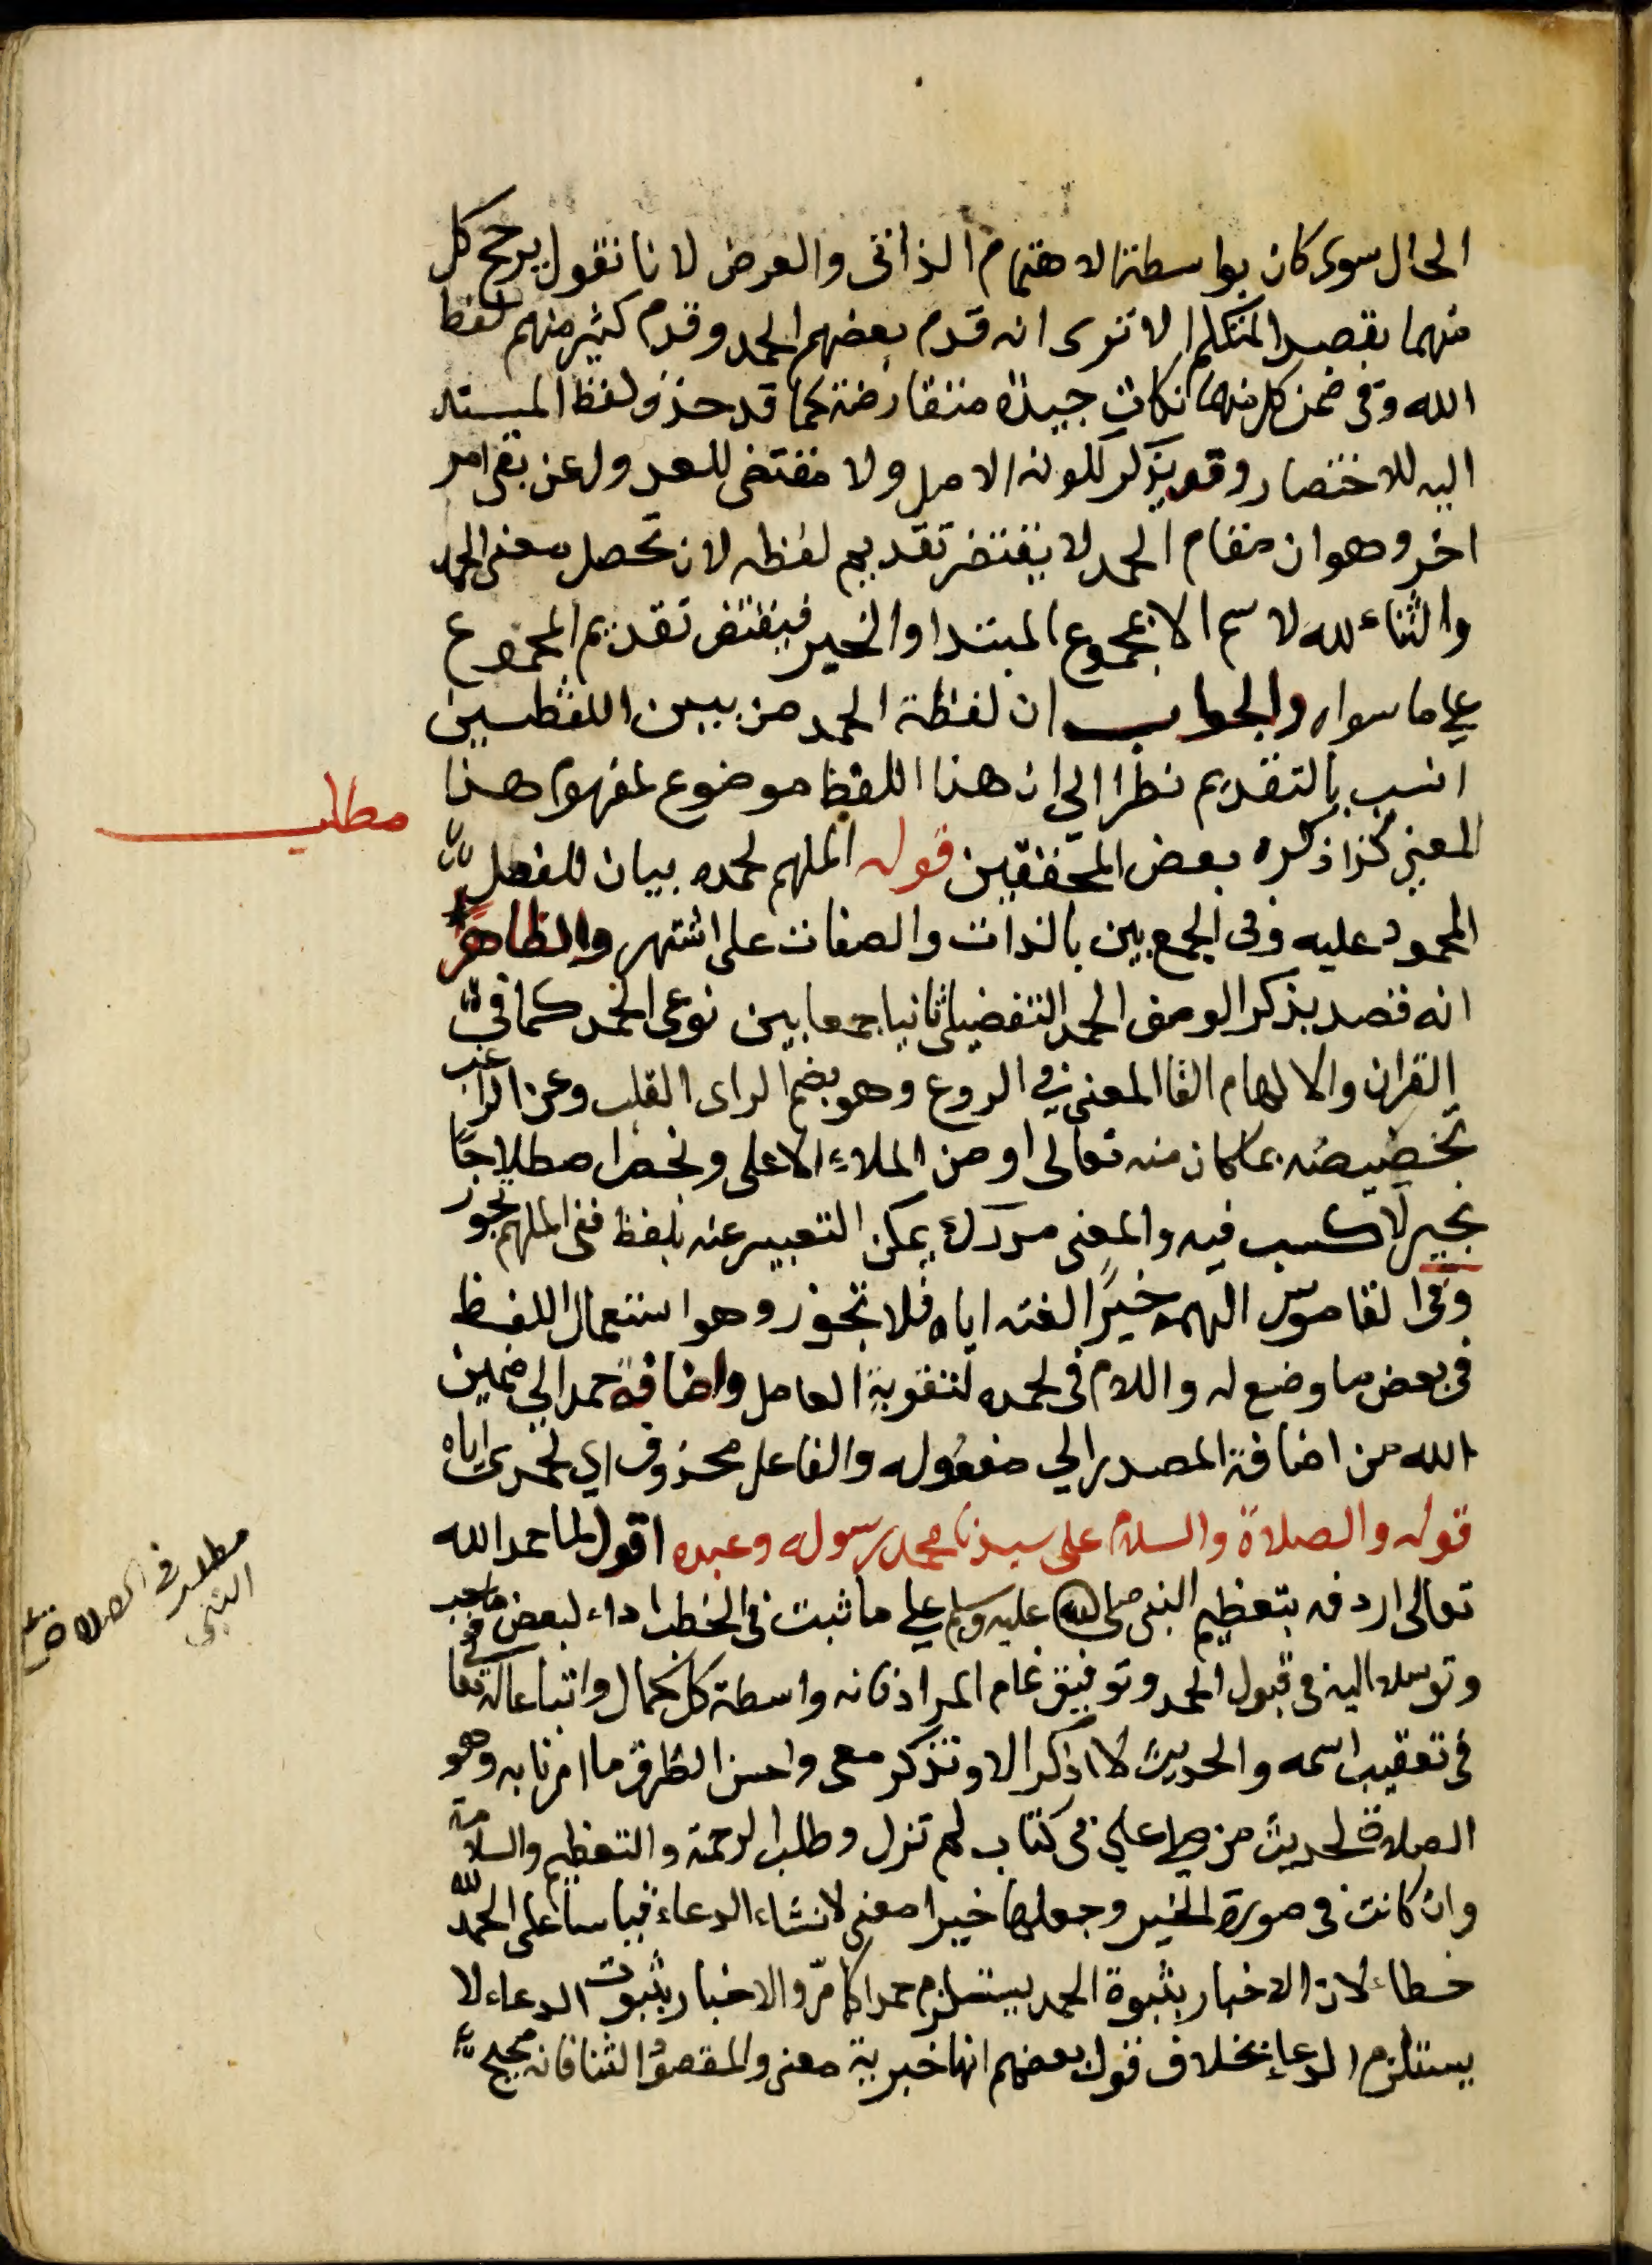 الحال سوى كان بواسطة الاهتمام الذاتى والعرض لانا نقول يرجح كل
منهما بقصد المتكلم الا ترى انه قدم بعضهم الحمد وقدم كثير منهم لفظ
الله وفى ضمن كل منهما نكات جيدة متقارضة كما قد حذف لفظ المسند
اليه للاختصار وقد يذكر لكونه الاصل ولا مقتضى للعدول عن بقى امر
اخر وهو ان مقام الحمد لا يقتضى تقديم لفظه لان تحصل معنى الحمد
والثناء لله لاسم الا بمجموع المبتدا والخبر فيقتضى تقديم المجموع
على ما سواه والجواب ان لفظة الحمد من بين اللفظين
انسب بالتقديم نظرا الى ان هذا اللفظ موضوع لمفهوم هذا
المعنى كذا ذكره بعض المحققين قوله الملهم لحمده بيان للفعل
المحمود عليه وفى الجمع بين بالذات والصفات على اشتهر والظاهر
انه قصد بذكر الوصف الحمد التفضيلى ثانيا جمعا بين نوعى الحمد كما فى
القران والالهام القا المعنى فى الروع وهو بضم الراى القلب وعن الراغب
تخصيصه بما كان منه تعالى او من الملاء الاعلى ونخص اصطلاحا
بخير لا كسب فيه والمعنى مدرك يمكن التعبير عنه بلفظ ففى الملهم تجوز
وفى القاموس الهمه خيرًا لقنه اياه فلا تجوز وهو استعمال اللفظ
فى بعض ما وضع له واللام فى لحمده لتقوية العامل واضافة حمد الى ضمير
الله من اضافة المصدر الى مفعوله والفاعل محذوف اى لحمدى اياه
قوله والصلاة والسلام على سيدنا محمد رسوله وعبده اقول لما حمد الله
تعالى اردفه بتعظيم النبى صلى الله عليه وسلم على ما ثبت فى الخطب اداء لبعض ما يجب
وتوسلا اليه فى قبول الحمد وتوفيق تمام المراد فانه واسطة كل كمال واتباعا له تعالى
فى تعقيب اسمه والحديث لا اذكر الا وتذكر معى واحسن الطرق ما امرنا به وهو
الصلاة لحديث من صلى على فى كتاب لم تزل وطلب الرحمة والتعظيم والسلامة
وان كانت فى صورة الخبر وجعلها خبرا معنى لانشاء الدعاء قياسا على الحمد لله
خطاء لان الاخبار بثبوة الحمد يستلزم حمدا كما مرّ والاخبار بثبوت الدعاء لا
يستلزم الدعاء بخلاف قول بعضهم انها خبرية معنى والمقصود الثنا فانه صحيح
مطلب
مطلب فى الصلاة على
النبى